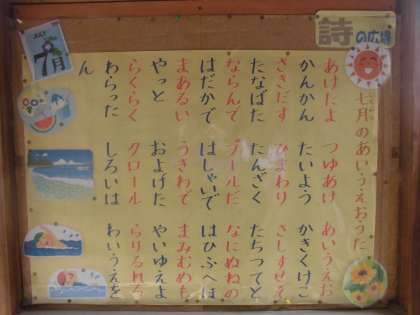 詩の広場
七月のあいうえおうた
あけたよ つゆあけ あいうえお
かんかん たいよう かきくけこ
さきだす ひまわり さしすせそ
たなばた たんざく たちつてと
ならんで プールだ なにぬねの
はだかで はしゃいで はひふへほ
まあるい うきわで まみむめも
やっと およげた やいゆえよ
らくらく クロール らりるれろ
わらった しろいは わいうえを
ん
JULY
7月